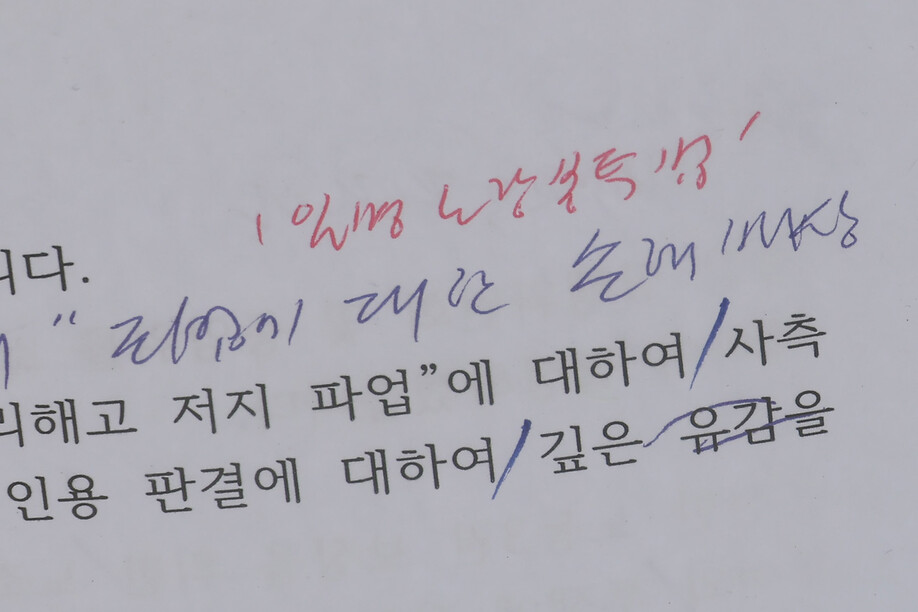 '일명 노랑봉투법'
니다.
" 파업에 대한 손해배상
리해고 저지 파업”에 대하여/사측
인용 판결에 대하여/깊은 유감을